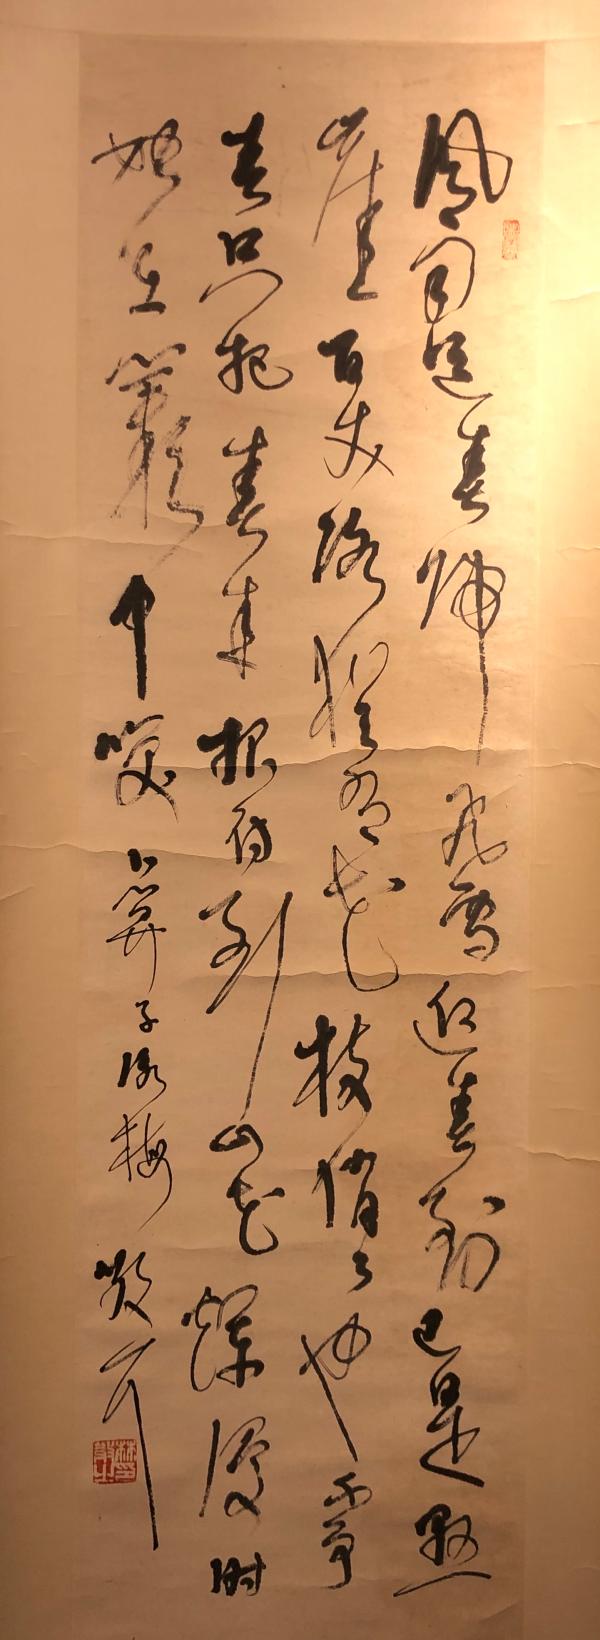 風雨送春歸飛雪迎春到已是懸
崖百丈冰猶有花枝俏々也不爭
春只把春来報待到山花爛漫时
她在叢中咲 卜算子詠梅 散耳
林散之印